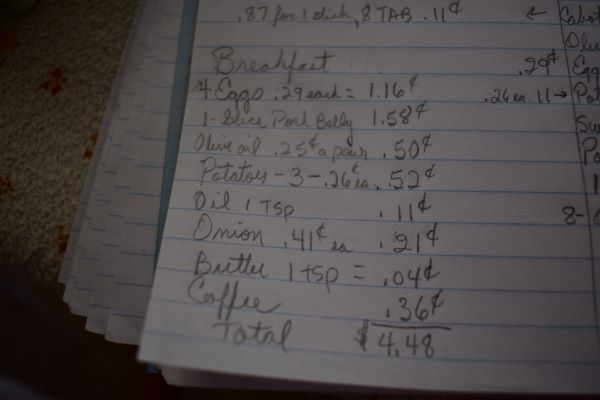 .87 for 1 stick, 8 TAB .11¢
Breakfast
4 Eggs .29 each = 1.16¢
1-Slice Pork Belly 1.58¢
Olive oil .25¢ a pour .50¢
Potatoes - 3 - .26¢ ea. .52¢
Oil 1 Tsp .11¢
Onion .41¢ ea .21¢
Butter 1 tsp = .04¢
Coffee .36¢
Total $4.48
← Cabot
.29¢ Egg
.26 ea 11 → Pot
8-